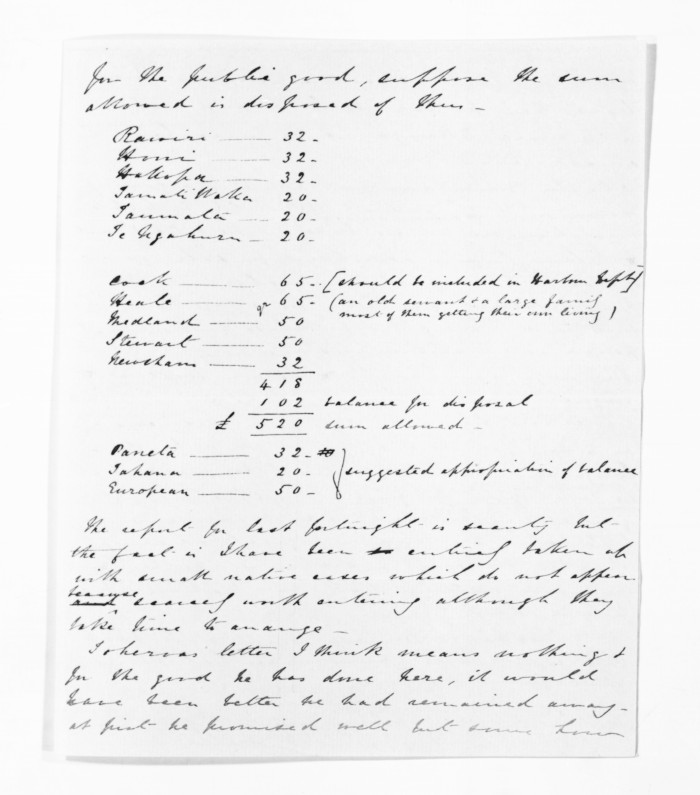 for the public good, suppose the sum
allowed is disposed of thus —
Rawiri — 32 —
Honi — 32 —
Hakopa — 32 —
Tamati Waka 20 —
Taumata — 20 —
Te Ngahuru — 20 —
Cook — 65 — [should be included in Harbour Dept]
Heale — or 65 — (an old servant & a large family
most of them getting their own living)
Medland — 50
Stewart — 50
Newsham — 32
418
102 balance for disposal
£ 520 sum allowed —
Paneta — 32 —
Tahana — 20 — suggested appropriation of balance
European — 50 —
The report for last fortnight is scanty but
the fact is I have been entirely taken up
with small native cases which do not appear
because scarcely worth entering although they
take time to arrange —
Iohervas letter I think means nothing &
for the good he has done here, it would
have been better he had remained away —
at first he promised well but some how